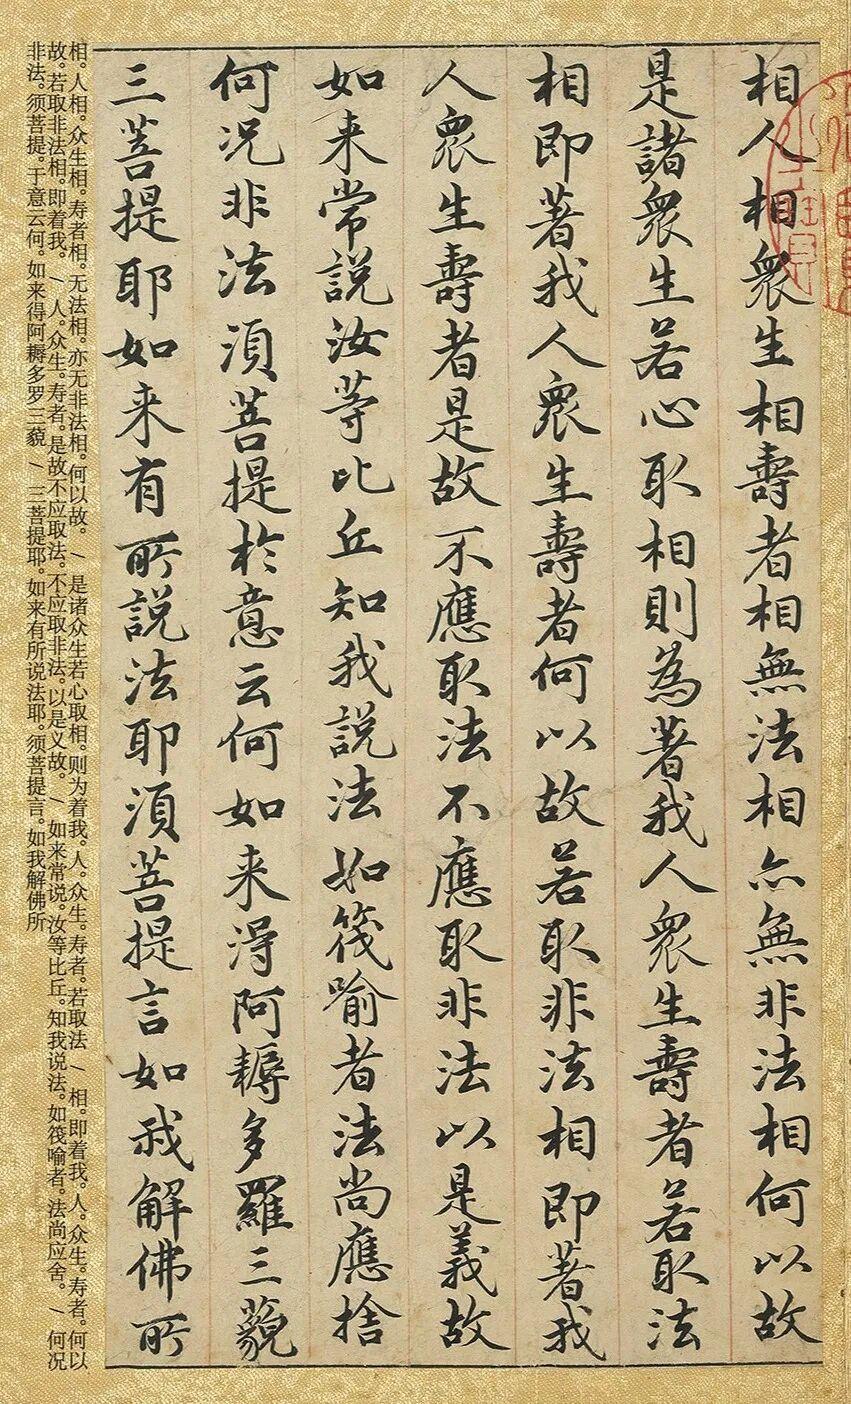 相人相衆生相壽者相無法相亦無非法相何以故
是諸衆生若心取相則為著我人衆生壽者若取法
相即著我人衆生壽者何以故若取非法相即著我
人衆生壽者是故不應取法不應取非法以是義故
如来常說汝等比丘知我說法如筏喻者法尚應捨
何况非法須菩提於意云何如来得阿耨多羅三藐
三菩提耶如来有所說法耶須菩提言如我解佛所
相。人相。众生相。寿者相。无法相。亦无非法相。何以故。/是诸众生若心取相。则为着我。人。众生。寿者。若取法/相。即着我。人。众生。寿者。何以
故。若取非法相。即着我。/人。众生。寿者。是故不应取法。不应取非法。以是义故。/如来常说。汝等比丘。知我说法。如筏喻者。法尚应舍。/何况
非法。须菩提。于意云何。如来得阿耨多罗三藐/三菩提耶。如来有所说法耶。须菩提言。如我解佛所